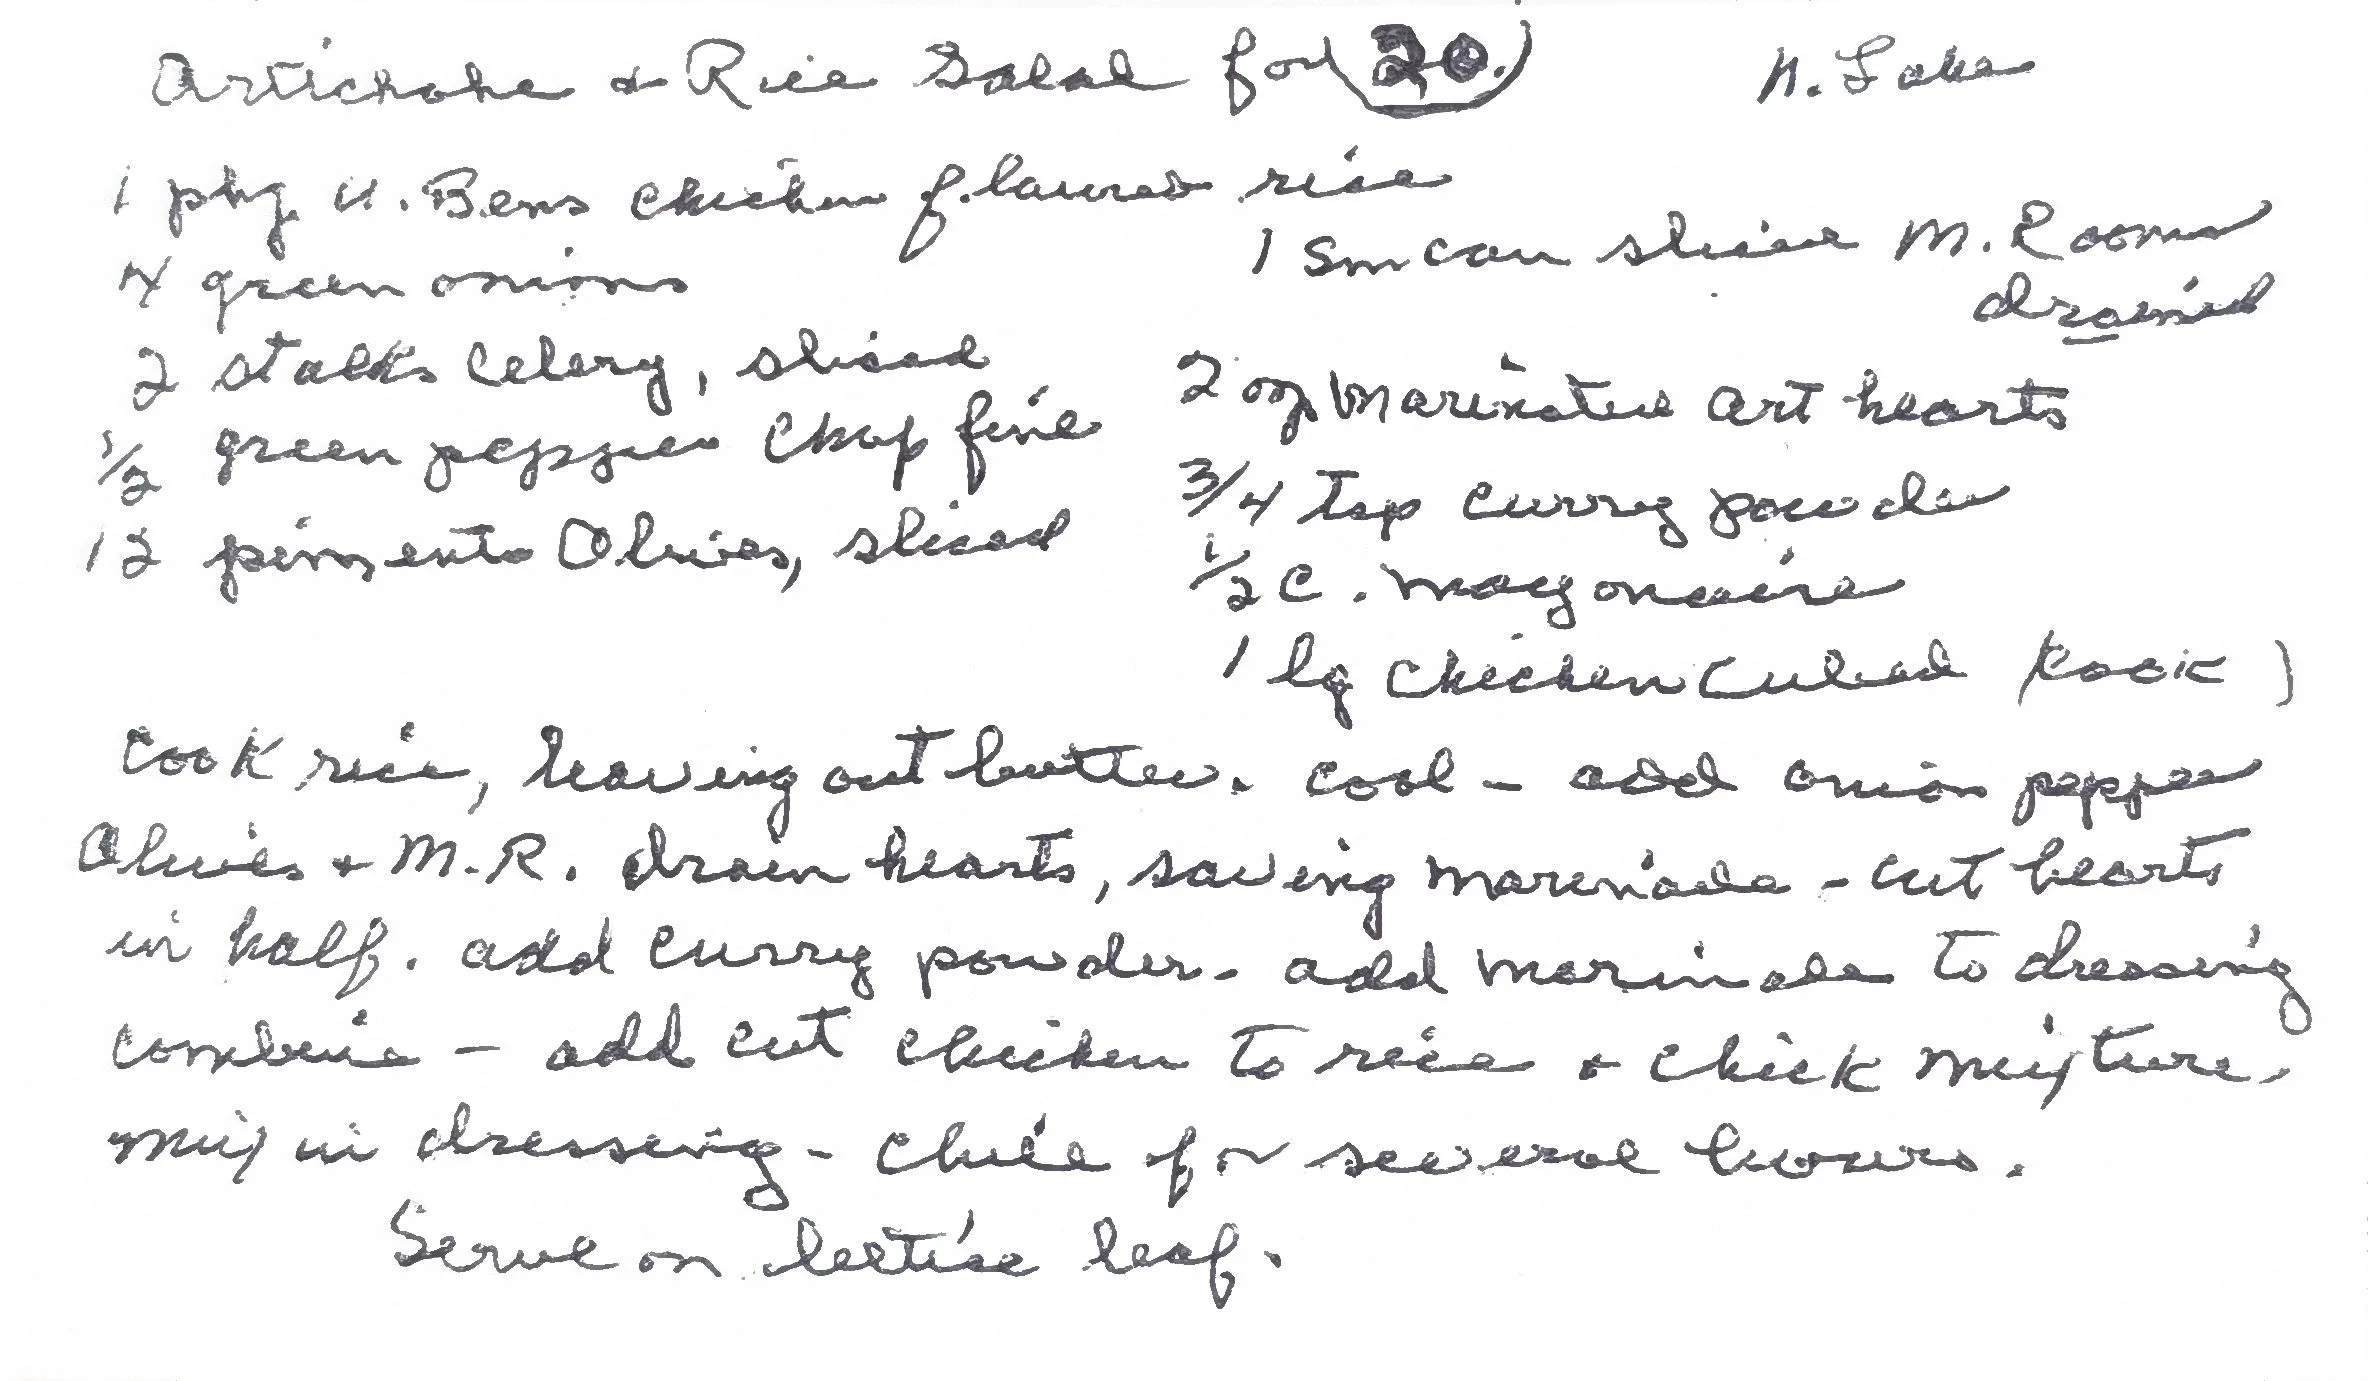 Artichoke + Rice Salad for 20. N. Lake
1 pkg U. Bens chicken flavored rice
4 green onions
2 stalks Celery, sliced
1/2 green pepper Chop fine
12 pimento Olives, sliced
1 sm can slice M. Rooms
drained
2 oz marinated art hearts
3/4 tsp curry powder
1/2 C. mayonaise
1 lg chicken cubed (cook)
Cook rice, leaving out butter. cool - add onion pepper
Olives + M.R. drain hearts, saving marinade - cut hearts
in half. add curry powder - add marinade to dressing
combine - add cut chicken to rice + chick mixture.
mix in dressing - chill for several hours.
Serve on lettice leaf.